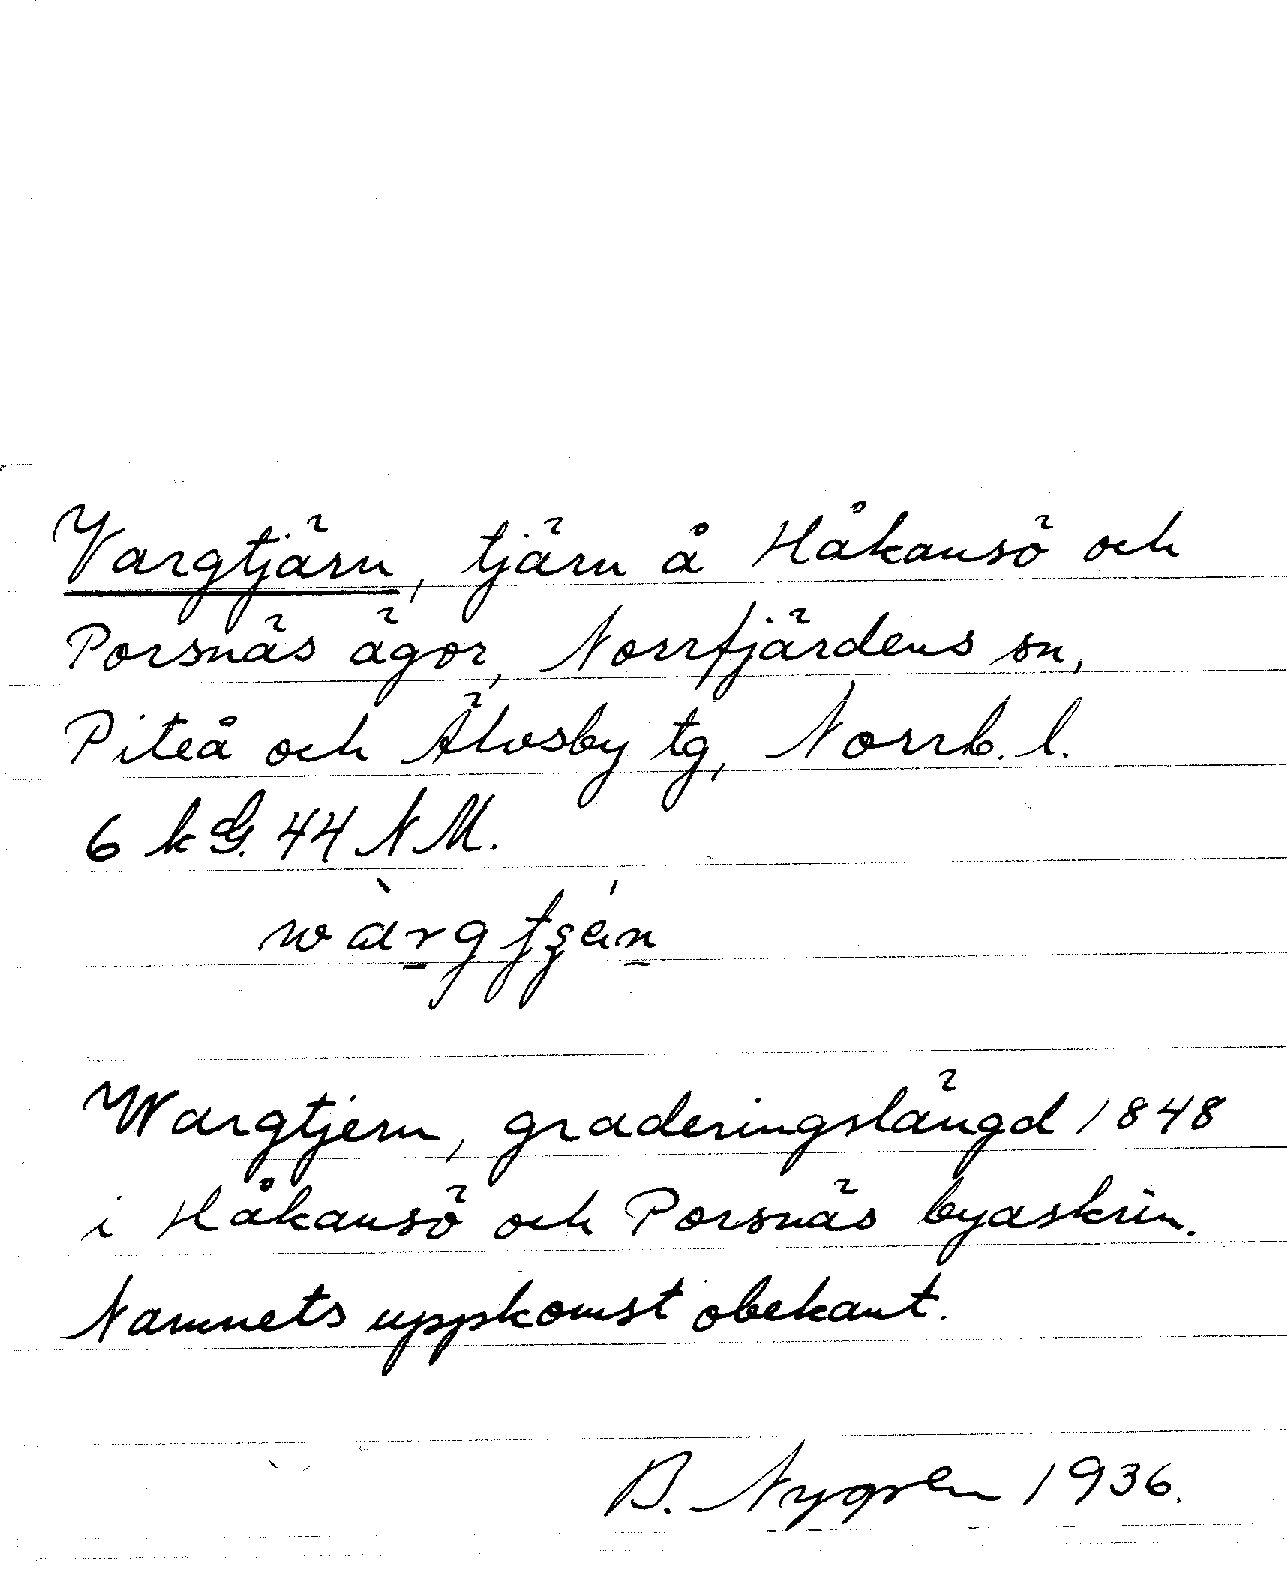 Vargtjärn, tjärn å Håkansö och
Porsnäs ägor, Norrfjärdens sn,
Piteå och Älvsby tg, Norrb. l.
6 k G. 44 N M.
Wargtjern, graderingslängd 1848
i Håkansö och Porsnäs byaskrin.
Namnets uppkomst obekant.
B. Nygren 1936.